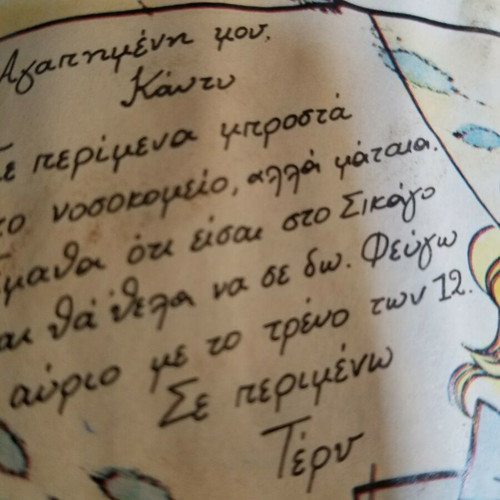 Αγαπημένη μου.
Κάντυ
Σε περίμενα μπροστά
το νοσοκομείο, αλλά μάταια.
Έμαθα ότι είσαι στο Σικάγο
και θά θελα να σε δω. Φεύγω
αύριο με το τρένο των 12.
Σε περιμένω
Τέρυ